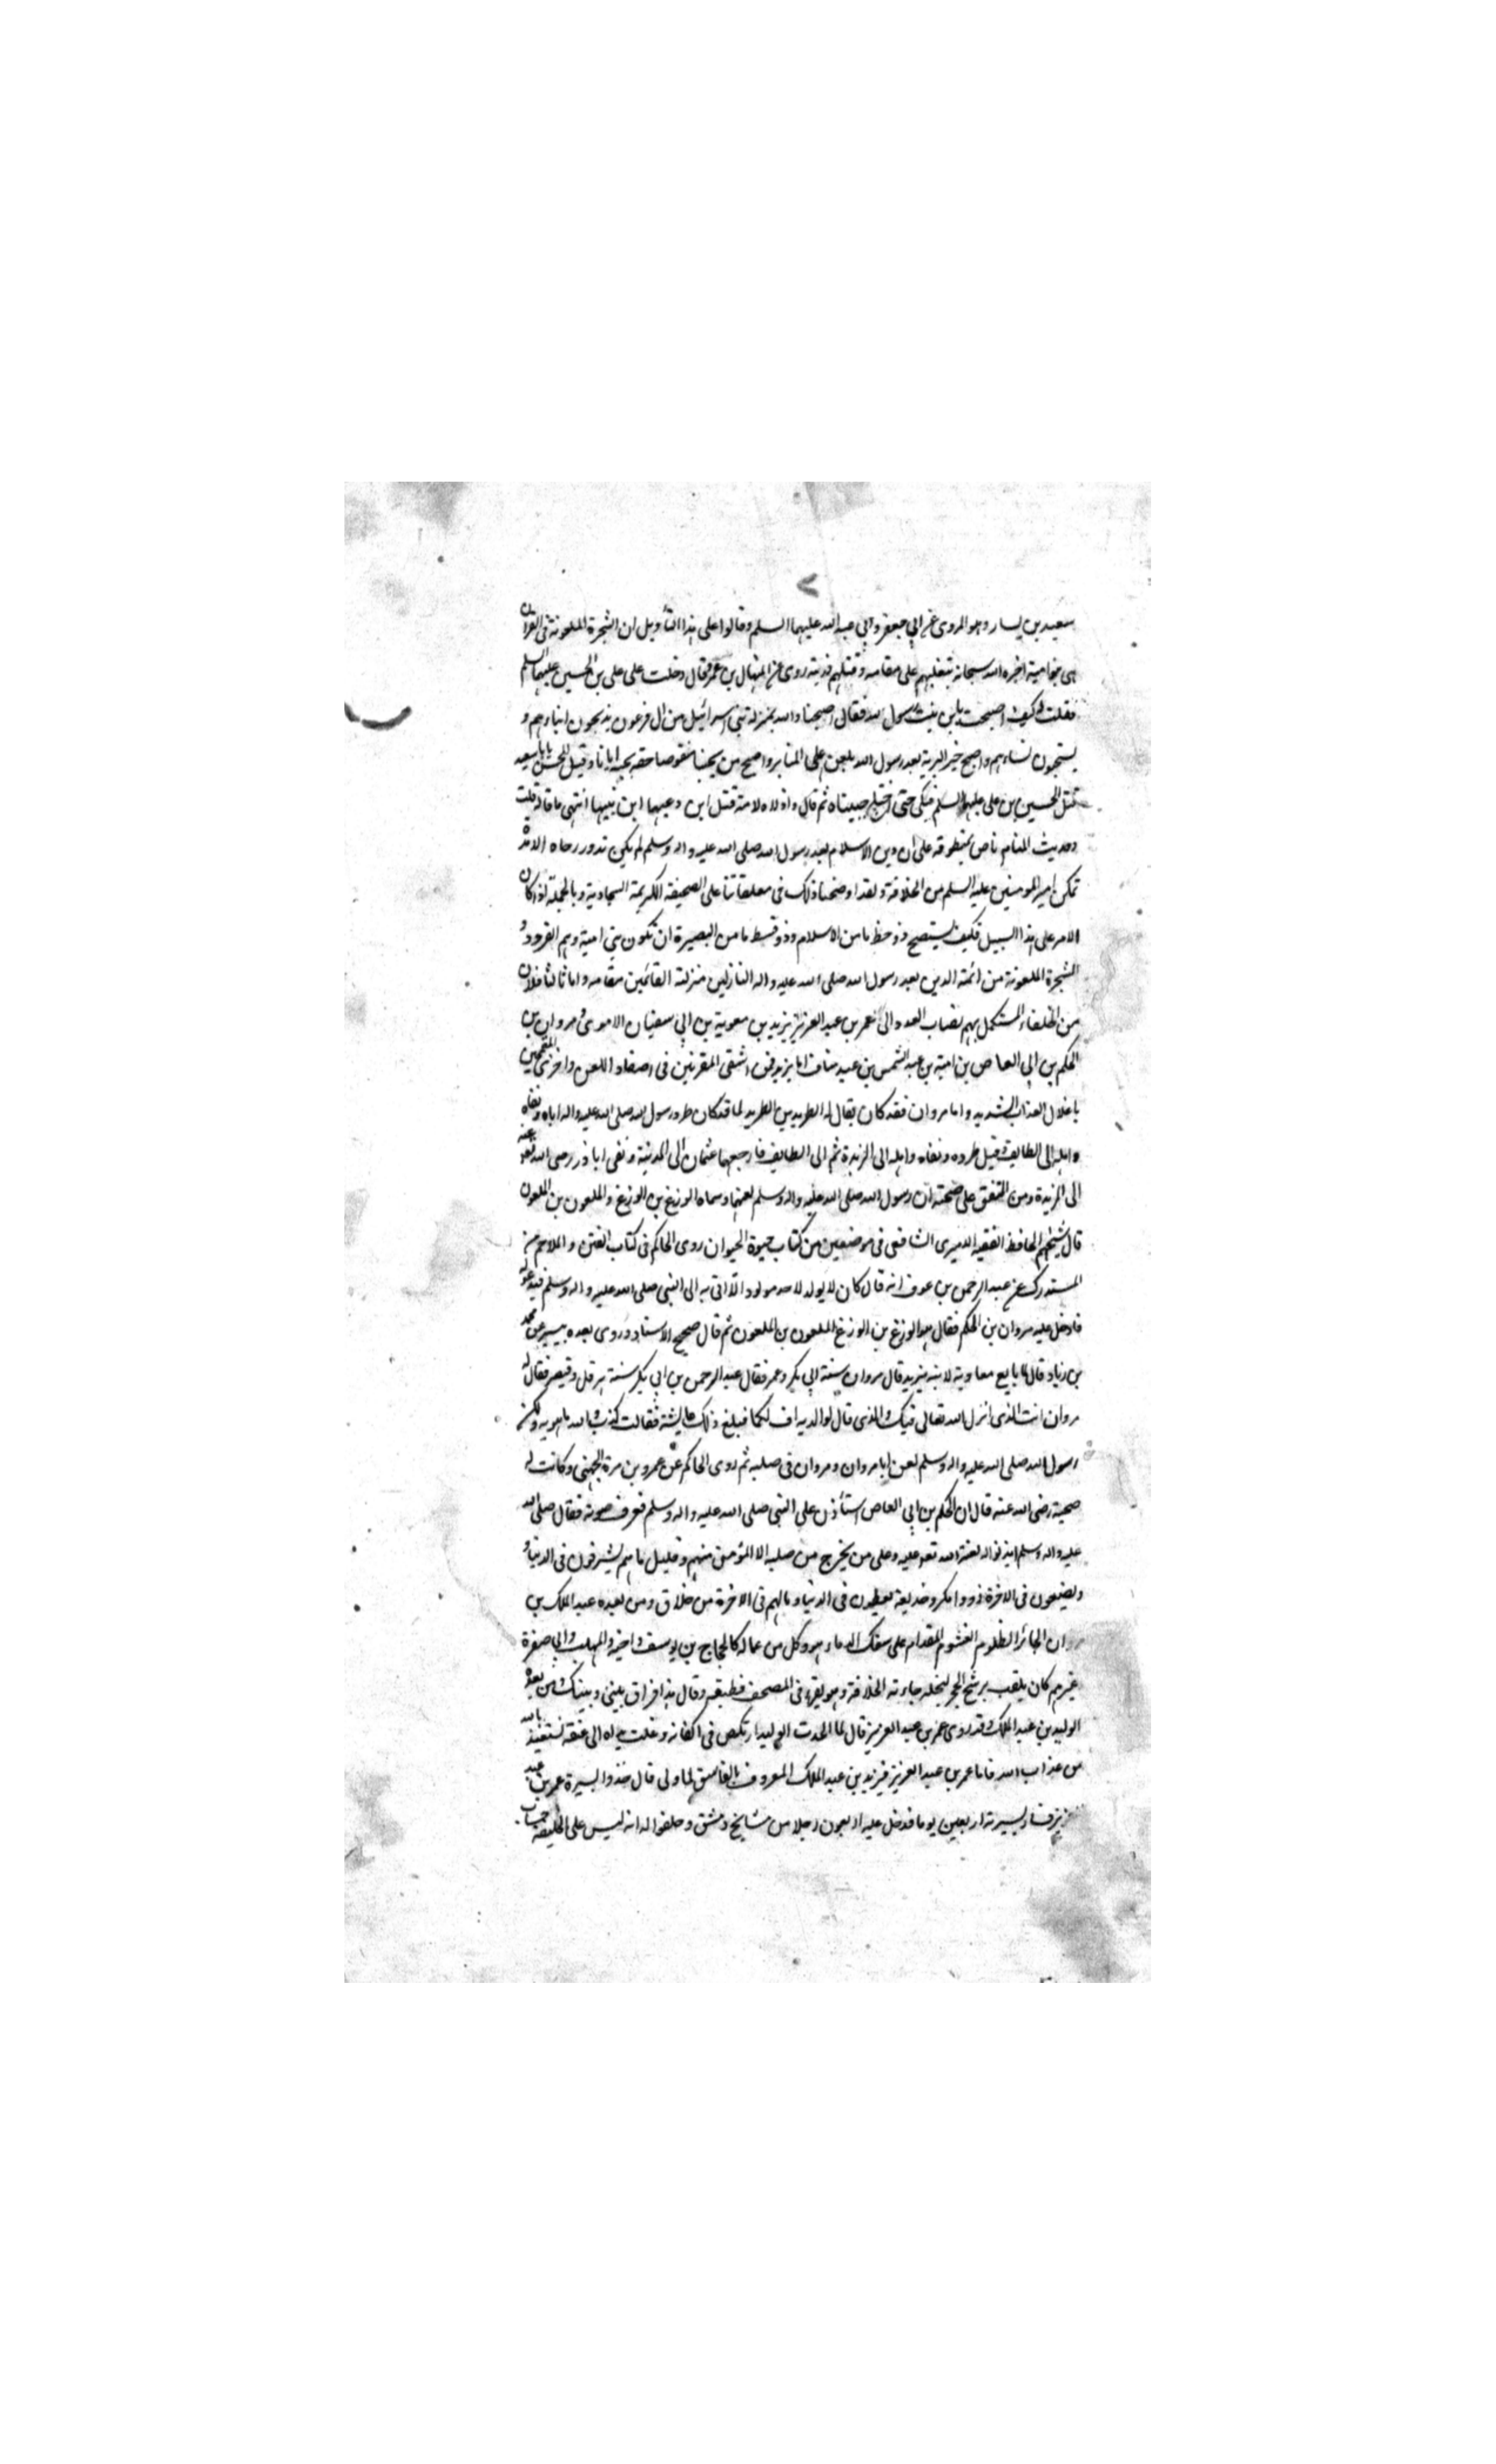 سعيد بن يسار وهو المروي عن ابي جعفر وابي عبد الله عليهما السلم وقالوا على هذا التأويل ان الشجرة الملعونة في القران
هي بنو امية اخبره الله سبحانه بتغلبهم على مقامه وقتلهم ذريته روى عن المنهال بن عمرو قال دخلت على علي بن الحسين عليهما السلم
فقلت له كيف اصبحت يابن بنت رسول الله فقال اصبحنا والله بمنزلة بني اسرائيل من ال فرعون يذبحون ابناءهم و
يستحيون نساءهم واصبح خير البرية بعد رسول الله يلعن على المنابر واصبح من يحبنا منقوصا حقه بحبه ايانا وقيل للحسن يا ابا سعيد
قتل الحسين بن علي عليهما السلم فبكى حتى اختلج جنبيناه ثم قال واذلاه لامة قتل ابن دعيها ابن نبيها انتهى ما قاله قلت
وحديث المنام ناص بمنطوقه على ان دين الاسلام بعد رسول الله صلى الله عليه واله وسلم لم يكن تدور رحاه الا مدة
تمكن امير المومنين عليه السلم من الخلافة ولقد اوضحنا ذلك في معلقاتنا على الصحيفة الكريمة السجادية وبالجملة اذا كان
الامر على هذا السبيل فكيف يستصح ذو حظ ما من الاسلام وذو قسط ما من البصيرة ان تكون بني امية وهم القرود و
الشجرة الملعونة من ائمة الدين بعد رسول الله صلى الله عليه واله النازلين منزلته القائمين مقامه واما ثالثا فلان
من الخلفاء المستكمل بهم نصاب العدد الى عمر بن عبد العزيز يزيد بن معوية بن ابي سفيان الاموي ومروان بن
الحكم بن ابي العاص بن امية بن عبد الشمس بن عبد مناف اما يزيد فمن اشقى المقرنين في اصفاد اللعن واخزى المقمحين
باغلال العذاب الشديد واما مروان فقد كان يقال له الطريد بن الطريد لما قد كان طرد رسول الله صلى الله عليه واله اباه ونفاه
واهله الى الطايف وقيل طرده ونفاه واهله الى الربذة ثم الى الطايف فارجعها عثمان الى المدينة ونفى اباذر رضي الله تعالى عنه
الى الربذة ومن المتفق على صحته ان رسول الله صلى الله عليه واله وسلم لعنهما وسماه الوزغ بن الوزغ والملعون بن الملعون
قال شيخهم الحافظ الفقيه الدميري الشافعي في موضعين من كتاب حيوة الحيوان روى الحاكم في كتاب الفتن والملاحم من
المستدرك عن عبد الرحمن بن عوف انه قال كان لا يولد لاحد مولود الا اتى به الى النبي صلى الله عليه واله وسلم فيدعو له
فادخل عليه مروان بن الحكم فقال هو الوزغ بن الوزغ الملعون بن الملعون ثم قال صحيح الاسناد وروى بعده بيسير عن محمد
بن زياد قال لما بايع معاوية لابنه يزيد قال مروان سنة ابي بكر وعمر فقال عبد الرحمن بن ابي بكر سنة هرقل وقيصر فقال له
مروان انت الذي انزل الله تعالى فيك والذي قال لوالديه اف لكما فبلغ ذلك عايشة فقالت كذب والله ما هو به ولكن
رسول الله صلى الله عليه واله وسلم لعن ابا مروان ومروان في صلبه ثم روى الحاكم عن عمرو بن مرة الجهني وكانت له
صحبة رضي الله عنه قال ان الحكم بن ابي العاص استأذن على النبي صلى الله عليه واله وسلم فعرف صوته فقال صلى الله
عليه واله وسلم ايذنوا له لعنة الله تعالى عليه وعلى من يخرج من صلبه الا المؤمن منهم وقليل ما هم يشرفون في الدنيا و
ويضيعون في الاخرة ذووا مكر وخديعة يعطون في الدنيا وما لهم في الاخرة من خلاق ومن بعده عبد الملك بن
مروان الجائر الظلوم الغشوم المقدام على سفك الدماء هو وكل من عماله كالحجاج بن يوسف واخيه والمهلب وابي صفرة
غيرهم كان يلقب برشح الحجر لبخله جاءته الخلافة وهو يقرء في المصحف فطبقه وقال هذا فراق بيني وبينك ومن بعده
الوليد بن عبد الملك وقد روى عمر بن عبد العزيز قال لما الحدت الوليد ارتكض في اكفانه وغلت يداه الى عنقه نستعيذ بالله
من عذاب الله فاما عمر بن عبد العزيز فيزيد بن عبد الملك المعروف بالفاسق لما ولى قال خذوا بسيرة عمر بن عبد
العزيز فسار بسيرته اربعين يوما فدخل عليه اربعون رجلا من مشايخ دمشق وحلفوا له انه ليس على الخليفة حساب